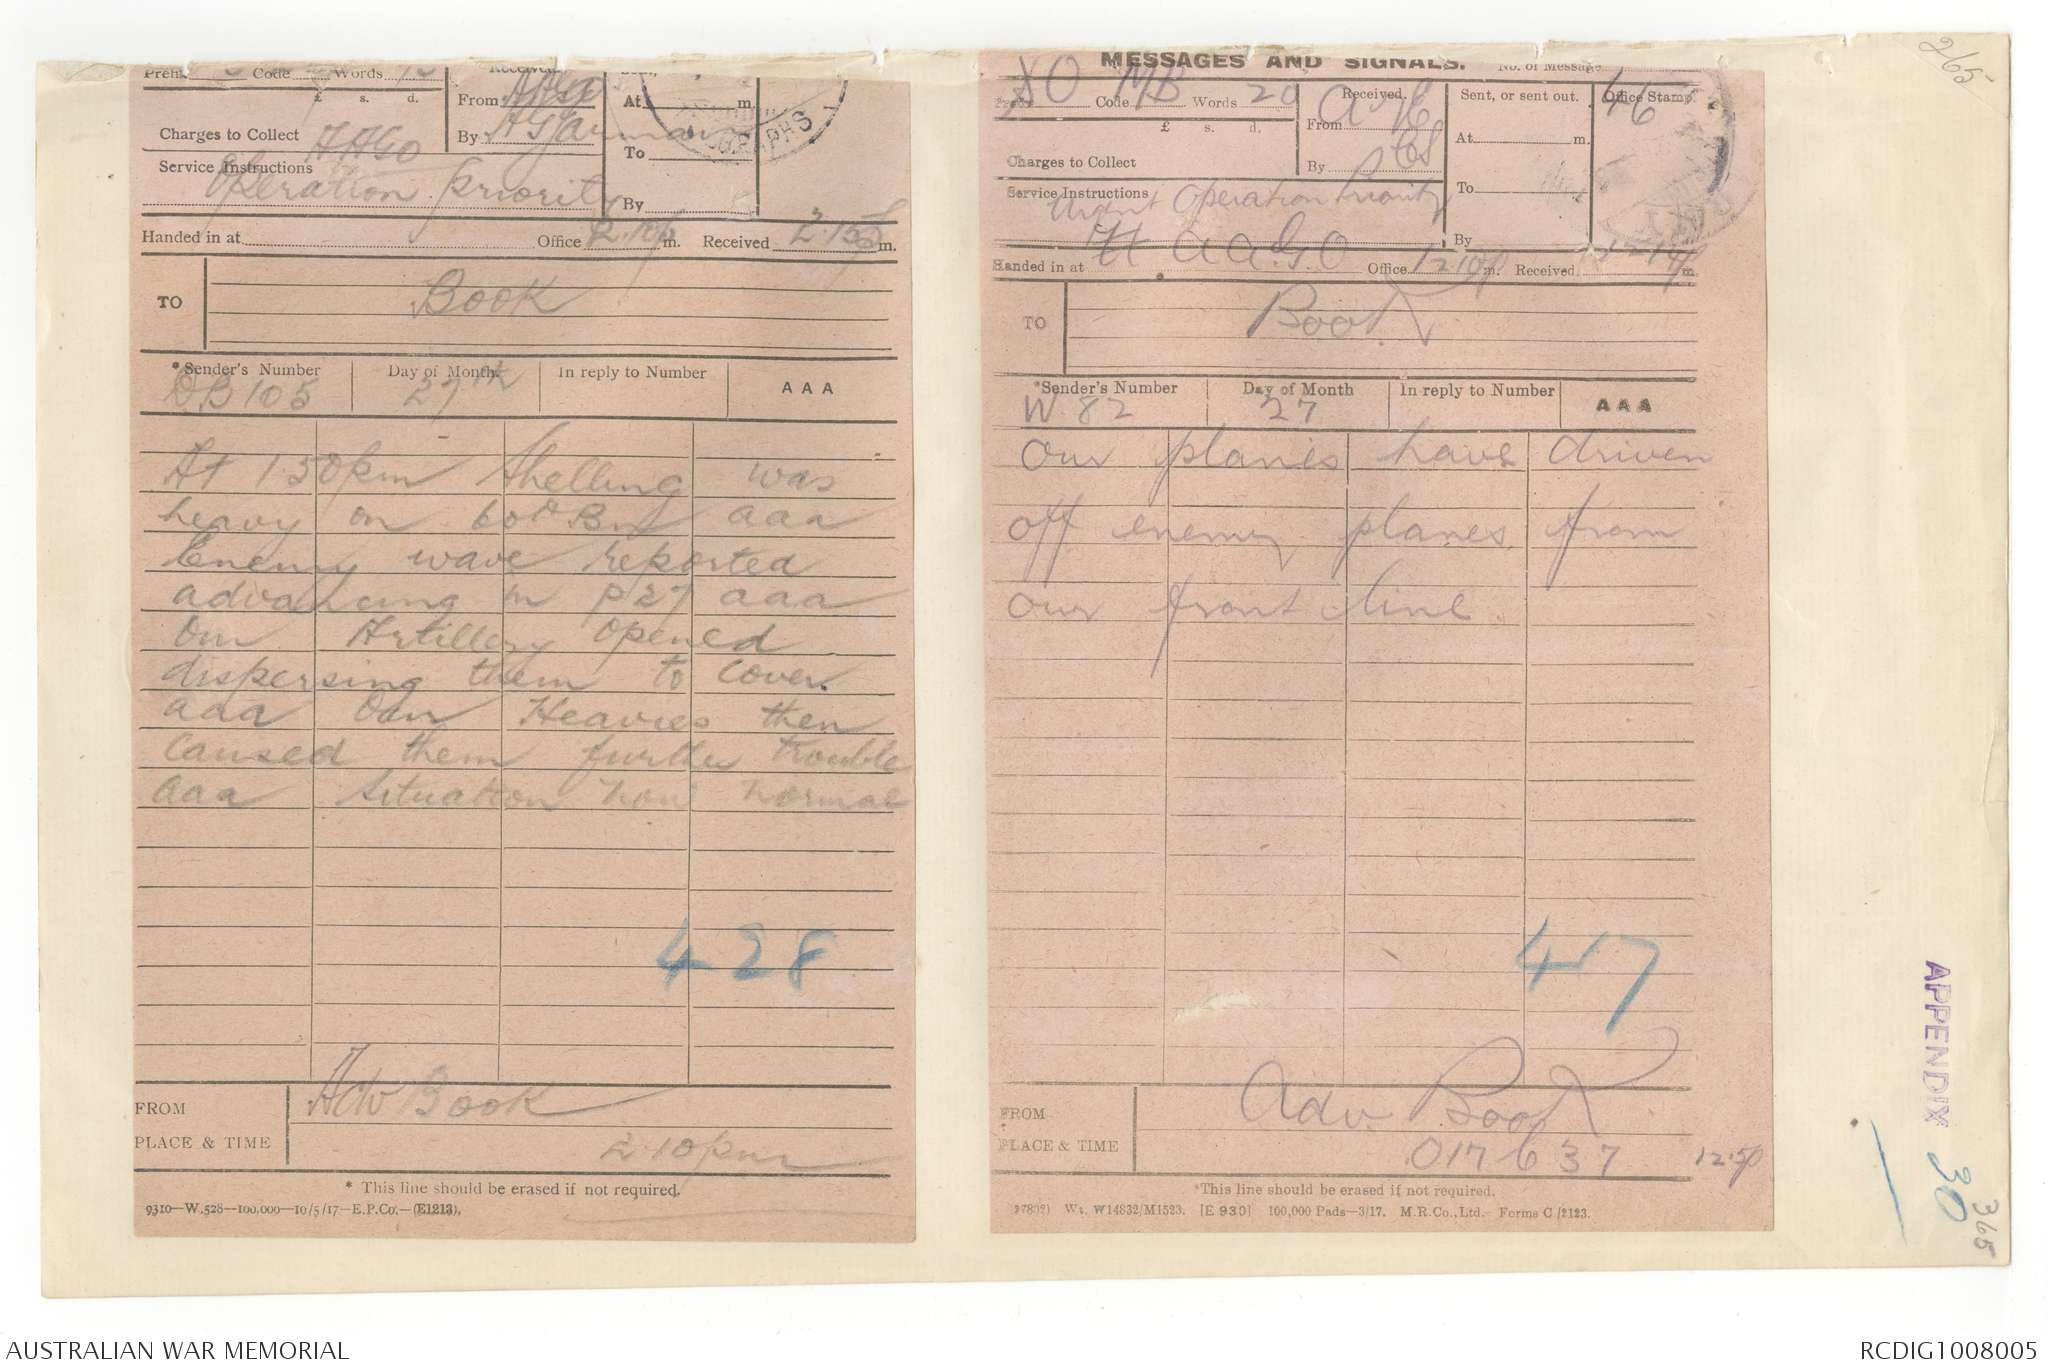 Prefix Code Words
£ s. d.
Charges to Collect
AAGO
Service Instructions
Operation priority
Received
From AAGO
By
At m.
To
By
GRAPHS
Handed in at Office 2.10p m. Received 2.15p m.
TO Book
*Sender's Number Day of Month In reply to Number AAA
DB105 27th
At 1.50pm shelling was
heavy on 60th Bn aaa
Enemy wave reported
advancing in P27 aaa
Our Artillery opened
dispersing them to cover.
aaa Our Heavies then
caused them further trouble
aaa Situation now normal
428
FROM Adv Book
PLACE & TIME 2.10pm
* This line should be erased if not required.
9310—W.528—100,000—10/5/17—E.P.Co.—(E1213).
MESSAGES AND SIGNALS. No. of Message
Code MB Words 20
£ s. d.
Charges to Collect
Service Instructions
Urgent Operation Priority
Received
From
By
Sent, or sent out.
At m.
To
By
Office Stamp.
Handed in at Office 12.10p m. Received m.
TO Book
*Sender's Number Day of Month In reply to Number AAA
W.82 27
Our planes have driven
off enemy planes from
our front line.
417
FROM Adv. Book
PLACE & TIME 017637 12.5p
*This line should be erased if not required.
Wt. W14832/M1523. [E 930] 100,000 Pads—3/17. M.R.Co., Ltd. Forms C/2123.
265
APPENDIX 30
365
AUSTRALIAN WAR MEMORIAL
RCDIG1008005